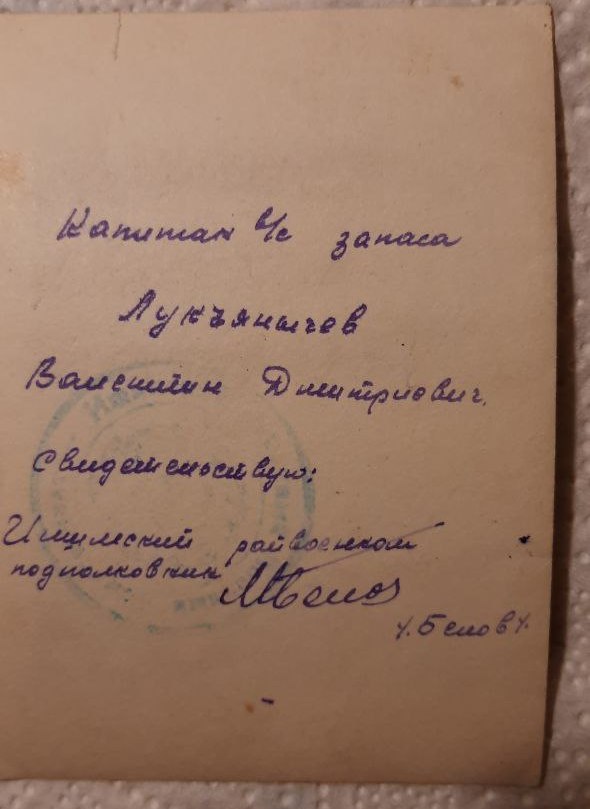 Капитан в/с запаса
Лукъянычев
Валентин Дмитриевич.
свидетельствую:
Ишимский райвоенком
подполковник
/.Белов/.